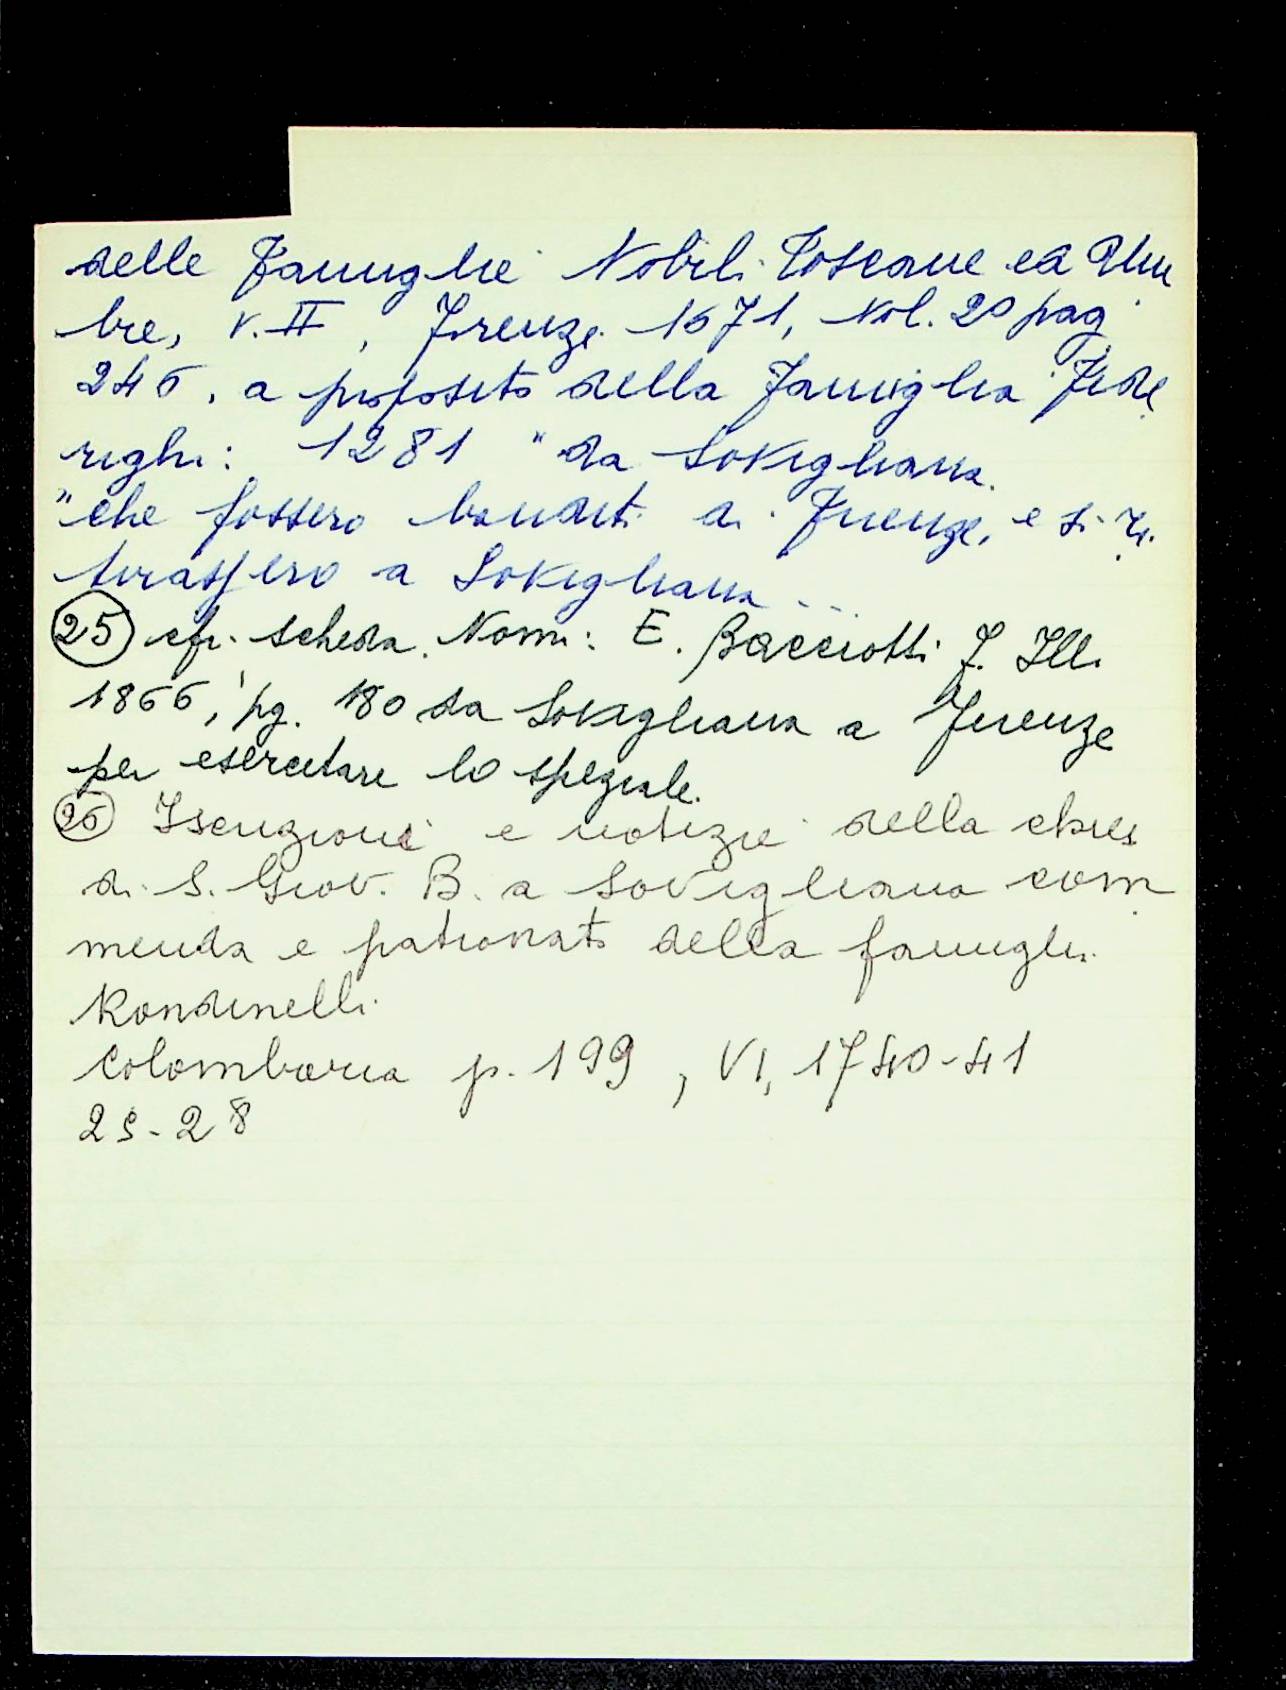 delle Famiglie Nobili Toscane ed Um
bre, v. II, Firenze 1671, Vol. 2º pag.
246, a proposito della Famiglia Fede
righi: 1281 "da Sovigliana.
"che fossero banditi di Firenze, e si ri
tirassero a Sovigliana...
(25) cfr. scheda Nomi: E. Bacciotti F. Ill.
1866, pg. 180 da Sovigliana a Firenze
per esercitare lo speziale.
(26) Iscrizioni e notizie della chies
di S. Giov. B. a Sovigliana com
menda e patronato della famigli
Rondinelli
Colombaria p. 199, VI, 1740-41
25-28